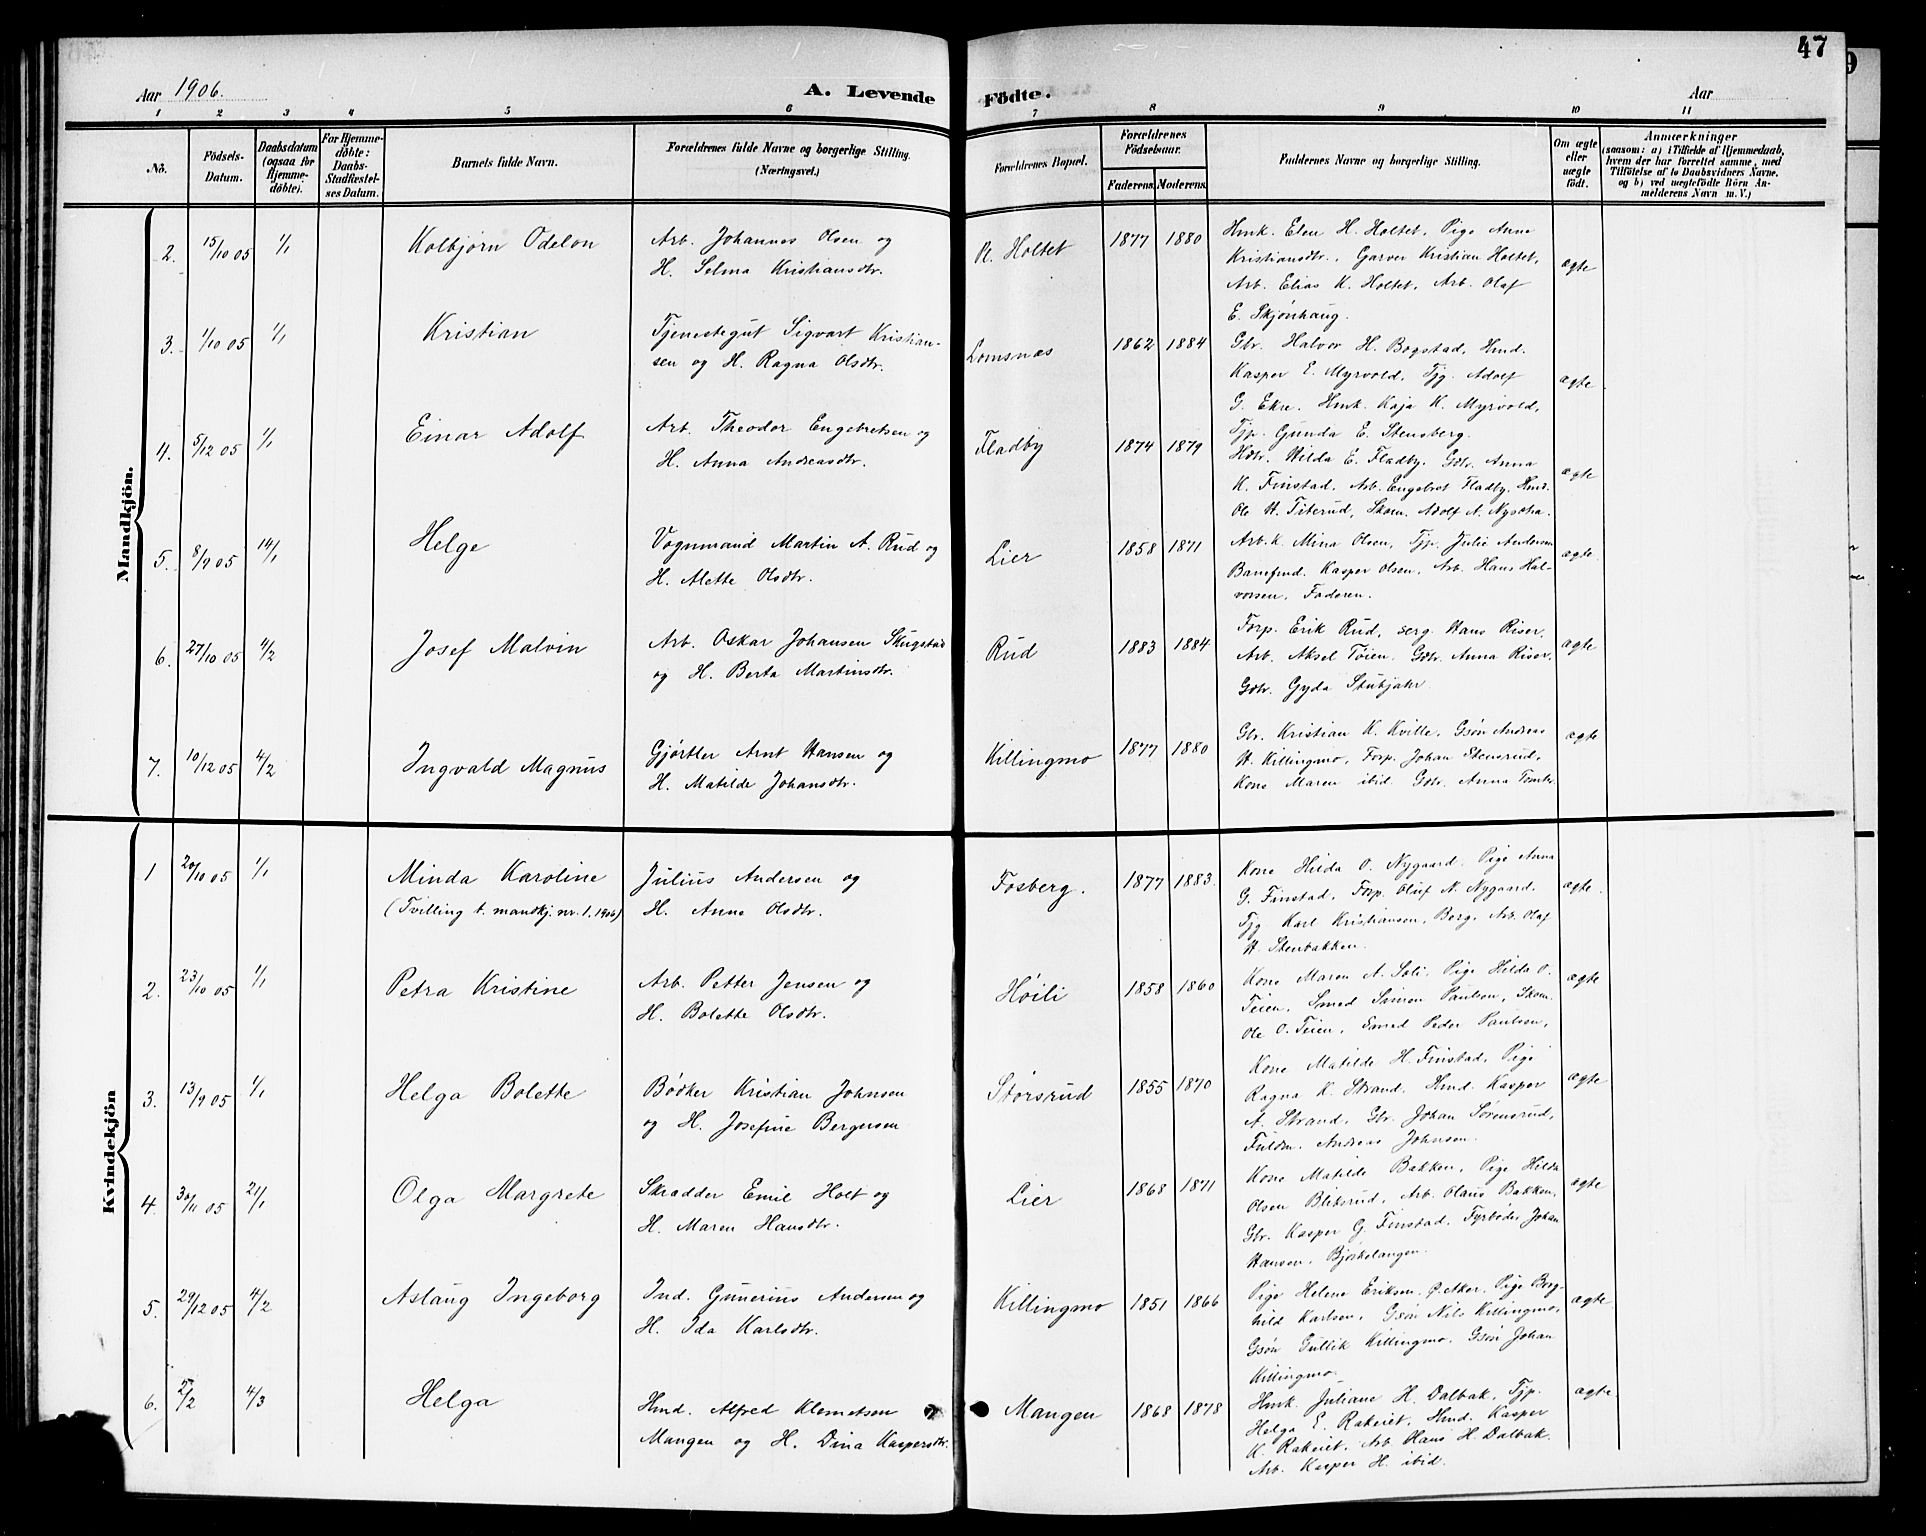 47
Aar 1906.
A. Levende Födte.
Aar
1 2 3 4 5 6 7 8 9 10 11
No.
Födsels-Datum.
Daabsdatum (ogsaa for Hjemmedøbte).
For Hjemmedøbte: Daabs-Stadfestelses Datum.
Barnets fulde Navn.
Forældrenes fulde Navne og borgerlige Stilling. (Næringsvei.)
Forældrenes Bopæl.
Forældrenes Födselsaar.
Faderens. Moderens.
Faddernes Navne og borgerlige Stilling.
Om ægte eller uægte født.
Anmærkninger
(saasom: a) i Tilfælde af Hjemmedaab, hvem der har forrettet samme, med Tilføielse af to Daabsvidners Navne, og b) ved uægtefödte Börn Anmelderens Navn m. V.)
Mandkjön.
2. 15/10 05 1/1 Kolbjørn Odelon
Arb. Johannes Olsen og
H. Selma Kristiansdtr.
Pl. Holtet 1877 1880
Hmk. Elen H. Holtet, Pige Anne
Kristiansdtr., Garver Kristian Holtet,
Arb. Elias K. Holtet, Arb. Olaf
E. Skjønhaug.
ægte
3. 1/10 05 1/1 Kristian
Tjenestegut Sigvart Kristian-
sen og H. Ragna Olsdtr.
Lomsnæs 1862 1884
Gbr. Halvor H. Bogstad, Hmd.
Kasper E. Myrvold, Tjg. Adolf
G. Ekre. Hmk. Kaja K. Myrvold,
Tjp. Gunda E. Stensberg.
ægte
4. 5/12 05 1/1 Einar Adolf
Arb. Theodor Engebretsen og
H. Anna Andreasdtr.
Fladby 1874 1879
Hdtr. Hilda E. Fladby. Gdtr. Anna
K. Finstad, Arb. Engebret Fladby, Hmd.
Ole H. Titerud, Skom. Adolf A.
ægte
5. 8/9 05 14/1 Helge
Vognmand Martin A. Rud og
H. Alette Olsdtr.
Lier 1858 1871
Arb.k. Mina Olsen, Tjp. Julie Andersen
Banefmd. Kasper Olsen, Arb. Hans Hal-
vorsen, Faderen.
ægte
6. 27/10 05 4/2 Josef Malvin
Arb. Oskar Johansen Skugstad
og H. Berta Martinsdtr.
Rud 1883 1884
Forp. Erik Rud, serg. Hans Riser,
Arb. Aksel Tøien. Gdtr. Anna Riser,
Gdtr. Gyda Stubjahr
ægte
7. 10/12 05 4/2 Ingvald Magnus
Gjørtler Arnt Hansen og
H. Matilde Johansdtr.
Killingmo 1877 1880
Gbr. Kristian K. Kville, Gsøn Andreas
H. Killingmo, Forp. Johan Stenerud,
Kone Maren ibid. Gdtr. Anna
ægte
Kvindekjön
1 20/10 05 1/1 Minda Karoline
(Tvilling t. mandkj. nr. 1. 1906)
Julius Andersen og
H. Anne Olsdtr.
Fosberg. 1877 1883.
Kone Hilda O. Nygaard. Pige Anna
G. Finstad, Forp. Oluf N. Nygaard.
Tjg Karl Kristiansen, Berg, Arb. Olaf
H. Stenbakken.
ægte
2. 23/10 05 1/1 Petra Kristine
Arb. Petter Jensen og
H. Bolette Olsdtr.
Høili 1858 1860
Kone Maren A. Soli, Pige Hilda O.
Teien, Smed Simen Paulsen, Skom.
Ole O. Teien, Smed Peder Paulsen,
ægte
3. 13/9 05 1/1 Helga Bolette
Bødker Kristian Johnsen
og H. Josefine Bergersen
Størsrud 1855 1870
Kone Matilde H. Finstad, Pige
Ragna K. Strand. Hmd. Kasper
A. Strand, Gbr. Johan Sørensrud,
Fuldm. Andreas Johnsen.
ægte
4. 30/11 05 21/1 Olga Margrete
Skradder Emil Holt og
H. Maren Hansdtr.
Lier 1868 1871
Kone Matilde Bakken, Pige Hilda
Olsen Bliksrud, Arb. Olaus Bakken,
Gbr. Kasper G. Finstad. Fyrbøder Johan
Hansen, Bjørkelangen.
ægte
5. 29/12 05 4/2 Aslaug Ingeborg
Ind. Gunerius Andersen og
H. Ida Karlsdtr.
Killingmo 1851 1866
Pige Helene Eriksen, Pige Borg-
hild Karlsen, Gsøn Nils Killingmo,
Gsøn Gullik Killingmo. Gsøn Johan
Killingmo
ægte
6. 2/2 4/3 Helga
Hmd. Alfred Klemetsen
Mangen og H. Dina Kaspersdtr.
Mangen 1868 1878
Hmk. Juliane H. Dalbak, Tjp.
Helga E. Rakeiet, Hmd. Kasper
K. Rakeiet, Arb. Hans H. Dalbak.
Arb. Kasper H. ibid.
ægte